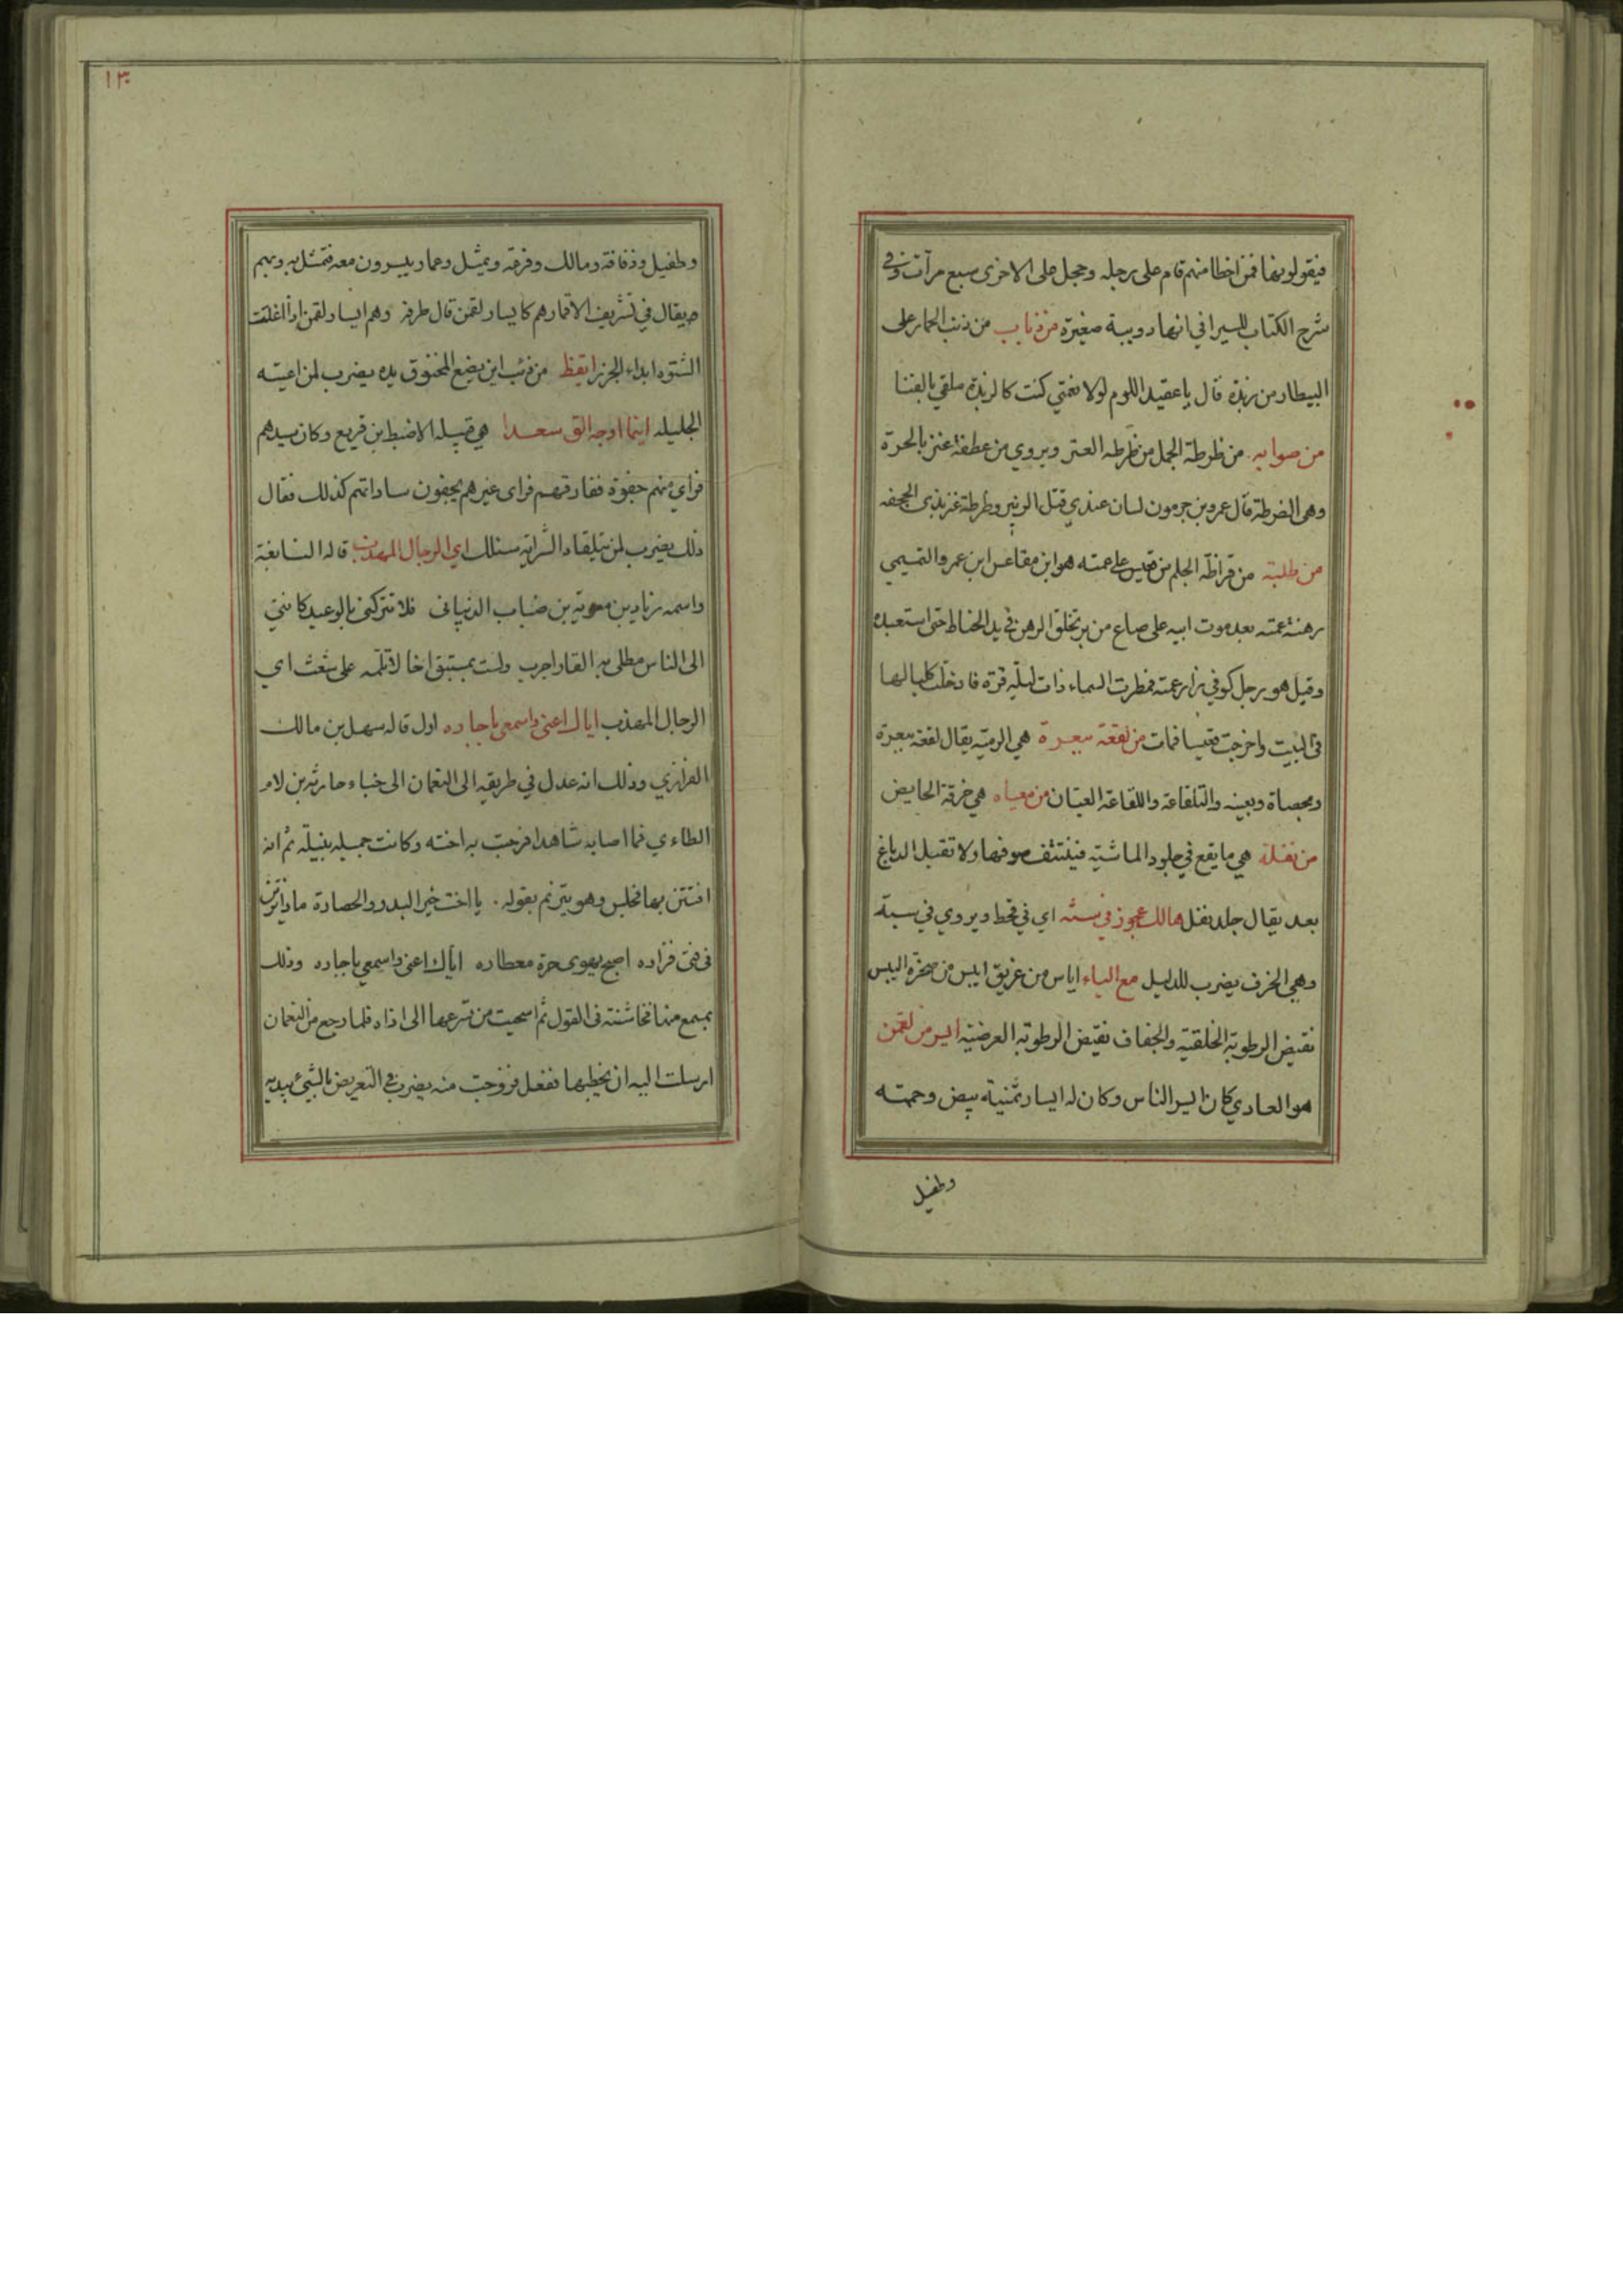 فيقولونها فمن اخطا منهم قام على رجله وحجل على الاخرى سبع مرآت وفي
شرح الكتاب للسيرافي انها دويبة صغيرة من ذباب من ذنب الحمار على
البيطار من ربذة قال يا عقيد اللوم لولا نعمتي كنت كالربذة ملقي بالفنا
من صوابه من ظرطة الجمل من ظرطه العنز ويروي من عطفة عنز بالحرة
وهي الضرطة قال عمرو بن جرمون لسان عندي قتل الزبير وظرطة عنز بذي الجحفه
من طلبة من قراظة الجلم من قيس على عمته هو ابن مقاعس ابن عمرو التميمي
رهنته عمته بعد موت ابيه على صاع من بر تخلق الرهن في يد الحناط حتى استعبده
وقيل هو رجل كوفي زار عمته فمطرت السماء ذات ليلة قرة فادخلت كلبا لها
في البيت واخرجت قيسا فمات من لقعة ببعرة هي الرمية يقال لقعه ببعرة
وبحصاة وبعينه والتلقاعة واللقاعة العيّان من معياه هي خرقة الحايض
من نغلة هي ما يقع في جلود الماشية فينتتف صوفها ولا تقبل الدباغ
بعد يقال جلد نغل هالك عجوز في سنته اي في قحط ويروي في سبة
وهي الخرف يضرب للدليل مع الياء اياس من غريق ايبس من صخرة اليبس
نقيض الرطوبة الخلقية والجفاف نقيض الرطوبة العرضية ايسر من لقمن
هو العادي كان ايسر الناس وكان له ايسار ثمنية بيض وحممة
وطفيل
١٣
وطفيل وذفافة ومالك وفرعة وثميل وعمار ييسرون معه فتمثل به وبهم
ويقال في تشريف الاقمار هم كايسار لقمن قال طرفه وهم ايسار لقمن اذا اغلقت
الشتوه ابداء الجزر ايقظ من ذئب اين يضع المخنوق يده يضرب لمن اعيته
الجليله اينما اوجه الق سعدا هي قبيلة الاضبط بن قريع وكان سيدهم
فراي منهم جفوة ففارقهم فراى غيرهم يجفون ساداتهم كذلك فقال
ذلك يضرب لمن يتلقاه الشر اية سلك اي الرجال المهذب قاله النابغة
واسمه زياد بن معوية بن ضباب الذبياني فلا تتركني بالوعيد كانني
الى الناس مطلى به القار اجرب ولست بمستبق اخا لا تلمه على شعث اي
الرجال المهذب اياك اعني واسمعي يا جاره اول قاله سهل بن مالك
الفزاري وذلك انه عدل في طريقه الى النعمان الى خباء حارثة بن لام
الطاءي فما اصابه شاهدا فرحبت به اخته وكانت جميله نبيلة ثم انه
افتتن بها فجلس وهو يترنم بقوله . يا اخت خير البدو والحضارة ماذا ترين
في فتى فزاره اصبح يهوى حرة معطاره اياك اعني واسمعي يا جاره وذلك
بمسمع منها فخاشنته في القول ثم استحيت من تسرعها الى اذاه فلما رجع من النعمان
ارسلت اليه ان يخطبها ففعل فزوجت منه يضرب في التعريض بالشيء يبديه